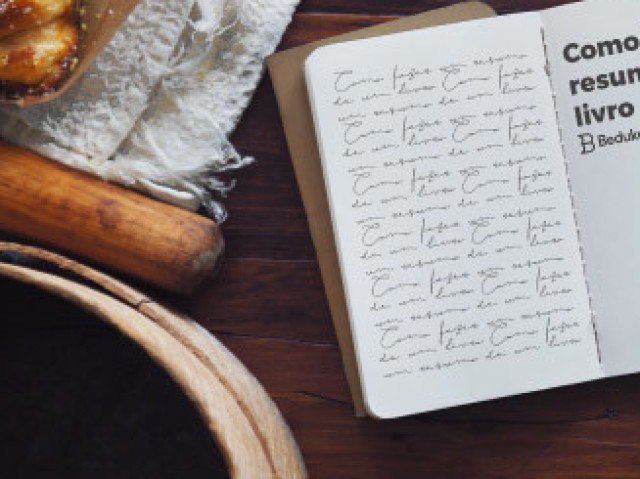 Como fazer um resumo
de um livro Como fazer
um resumo de um livro
Como fazer um resumo
de um livro Como fazer
um resumo de um livro
Como fazer um resumo
de um livro Como fazer
um resumo de um livro
Como fazer um resumo
de um livro Como fazer
um resumo de um livro
Como fazer um resumo
de um livro Como fazer
um resumo de um livro
Como fazer um resumo
de um livro Como fazer
um resumo de um livro
Como
resum
livro
Beduk